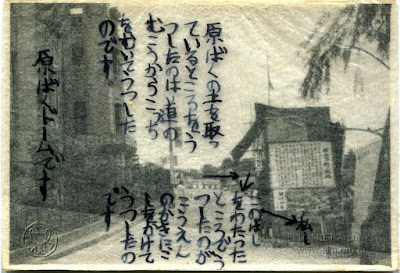 原ばくの土を取っ
ているところをう
つしたのは道の
むこうからこっち
をむいてうつした
のです。
原ばくドームです
私
このはし
をわたった
ところでう
つしたのが
こうえん
のかきにこ
しをかけて
うつしたの
です